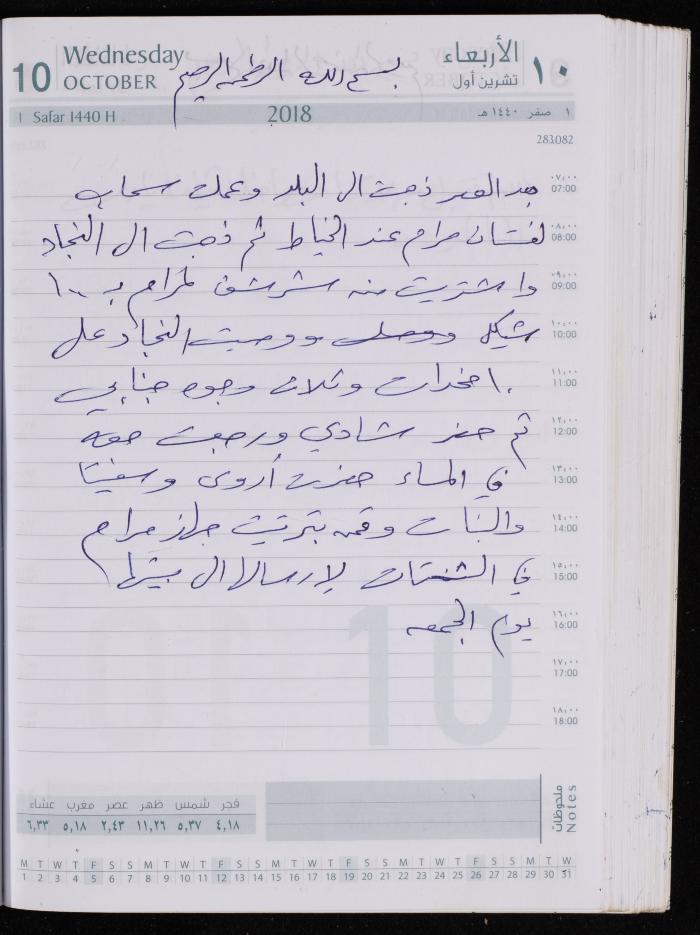 10 Wednesday OCTOBER
الأربعاء ١٠
تشرين أول
بسم الله الرحمن الرحيم
1 Safar 1440 H 2018 ١ صفر ١٤٤٠ هـ
283.082
بعد العصر ذهبت الى البلد وعملت سحاب
لفستان مرام عند الخياط ثم ذهبت الى النجاد
واشتريت منه شرشف لمرام بـ ١٠٠
شيكل ووصيت النجاد على
١٠ مخدات وثلاث وجوه جنابي
ثم حضر شادي ورجعت معه
في المساء حضرت أروى وسفيتا
والبنات وقمن بترتيب جهاز مرام
في الشنتات لإرسالها الى بيتها
يوم الجمعه
٠٧,٠٠
07:00
٠٨,٠٠
08:00
٠٩,٠٠
09:00
١٠,٠٠
10:00
١١,٠٠
11:00
١٢,٠٠
12:00
١٣,٠٠
13:00
١٤,٠٠
14:00
١٥,٠٠
15:00
١٦,٠٠
16:00
١٧,٠٠
17:00
١٨,٠٠
18:00
10
ملحوظات
Notes
فجر شمس ظهر عصر مغرب عشاء
٤,١٨ ٥,٣٧ ١١,٢٦ ٢,٤٣ ٥,١٨ ٦,٣٣
M T W T F S S M T W T F S S M T W T F S S M T W T F S S M T W
1 2 3 4 5 6 7 8 9 10 11 12 13 14 15 16 17 18 19 20 21 22 23 24 25 26 27 28 29 30 31